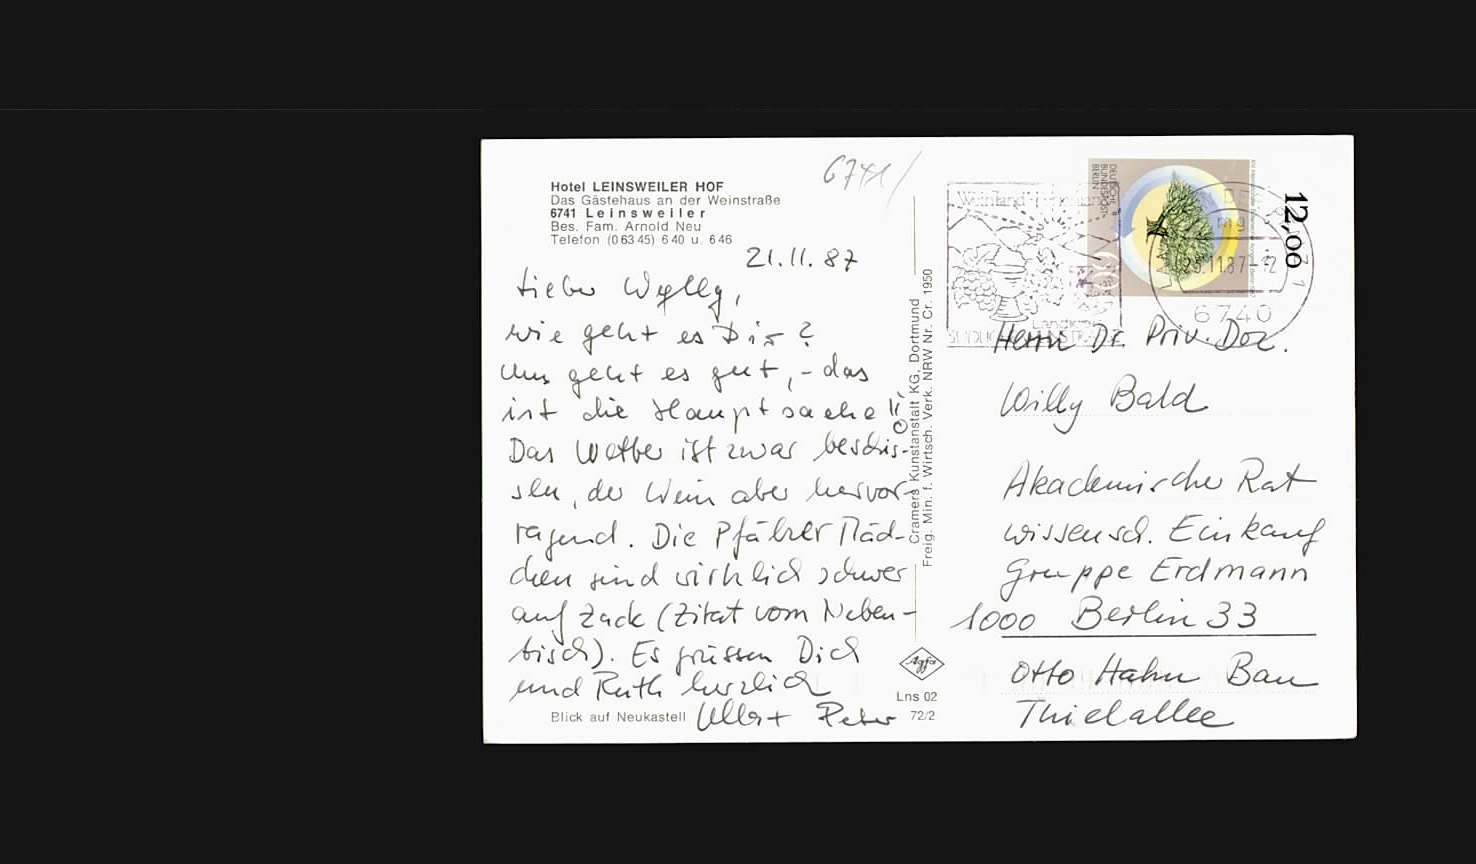 6741/
Hotel LEINSWEILER HOF
Das Gästehaus an der Weinstraße
6741 Leinsweiler
Bes. Fam. Arnold Neu
Telefon (06345) 640 u. 646
21.11.87
Lieber Wylly,
wie geht es Dir?
Uns geht es gut, - das
ist die Hauptsache!!
Das Wetter ist zwar beschis-
sen, der Wein aber hervor-
ragend. Die Pfälzer Mäd-
chen sind wirklich schwer
auf Zack (Zitat vom Neben-
tisch). Es grüssen Dich
und Ruth herzlich
Peter
Blick auf Neukastell
Cramers Kunstanstalt KG, Dortmund
Freig. Min. f. Wirtsch. Verk. NRW Nr. Cr. 1950
Agfa
Lns 02
72/2
DEUTSCHE
BUNDESPOST
BERLIN
12,00
Landkreis
6740
Herrn Dr. Priv. Doz.
Willy Bald
Akademischer Rat
wissensch. Einkauf
Gruppe Erdmann
1000 Berlin 33
Otto Hahn Bau
Thielallee